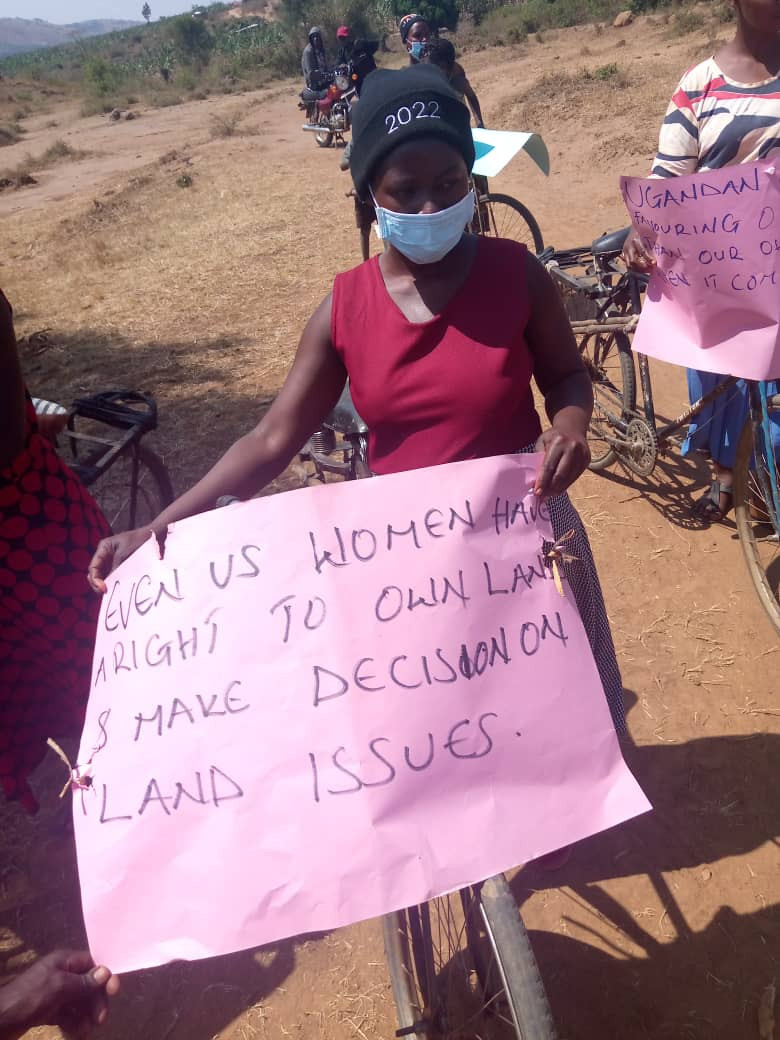 2022
EVEN US WOMEN HAVE
A RIGHT TO OWN LAND
& MAKE DECISION ON
LAND ISSUES.
UGANDAN
FAVOURING
THAN OUR
IT COM